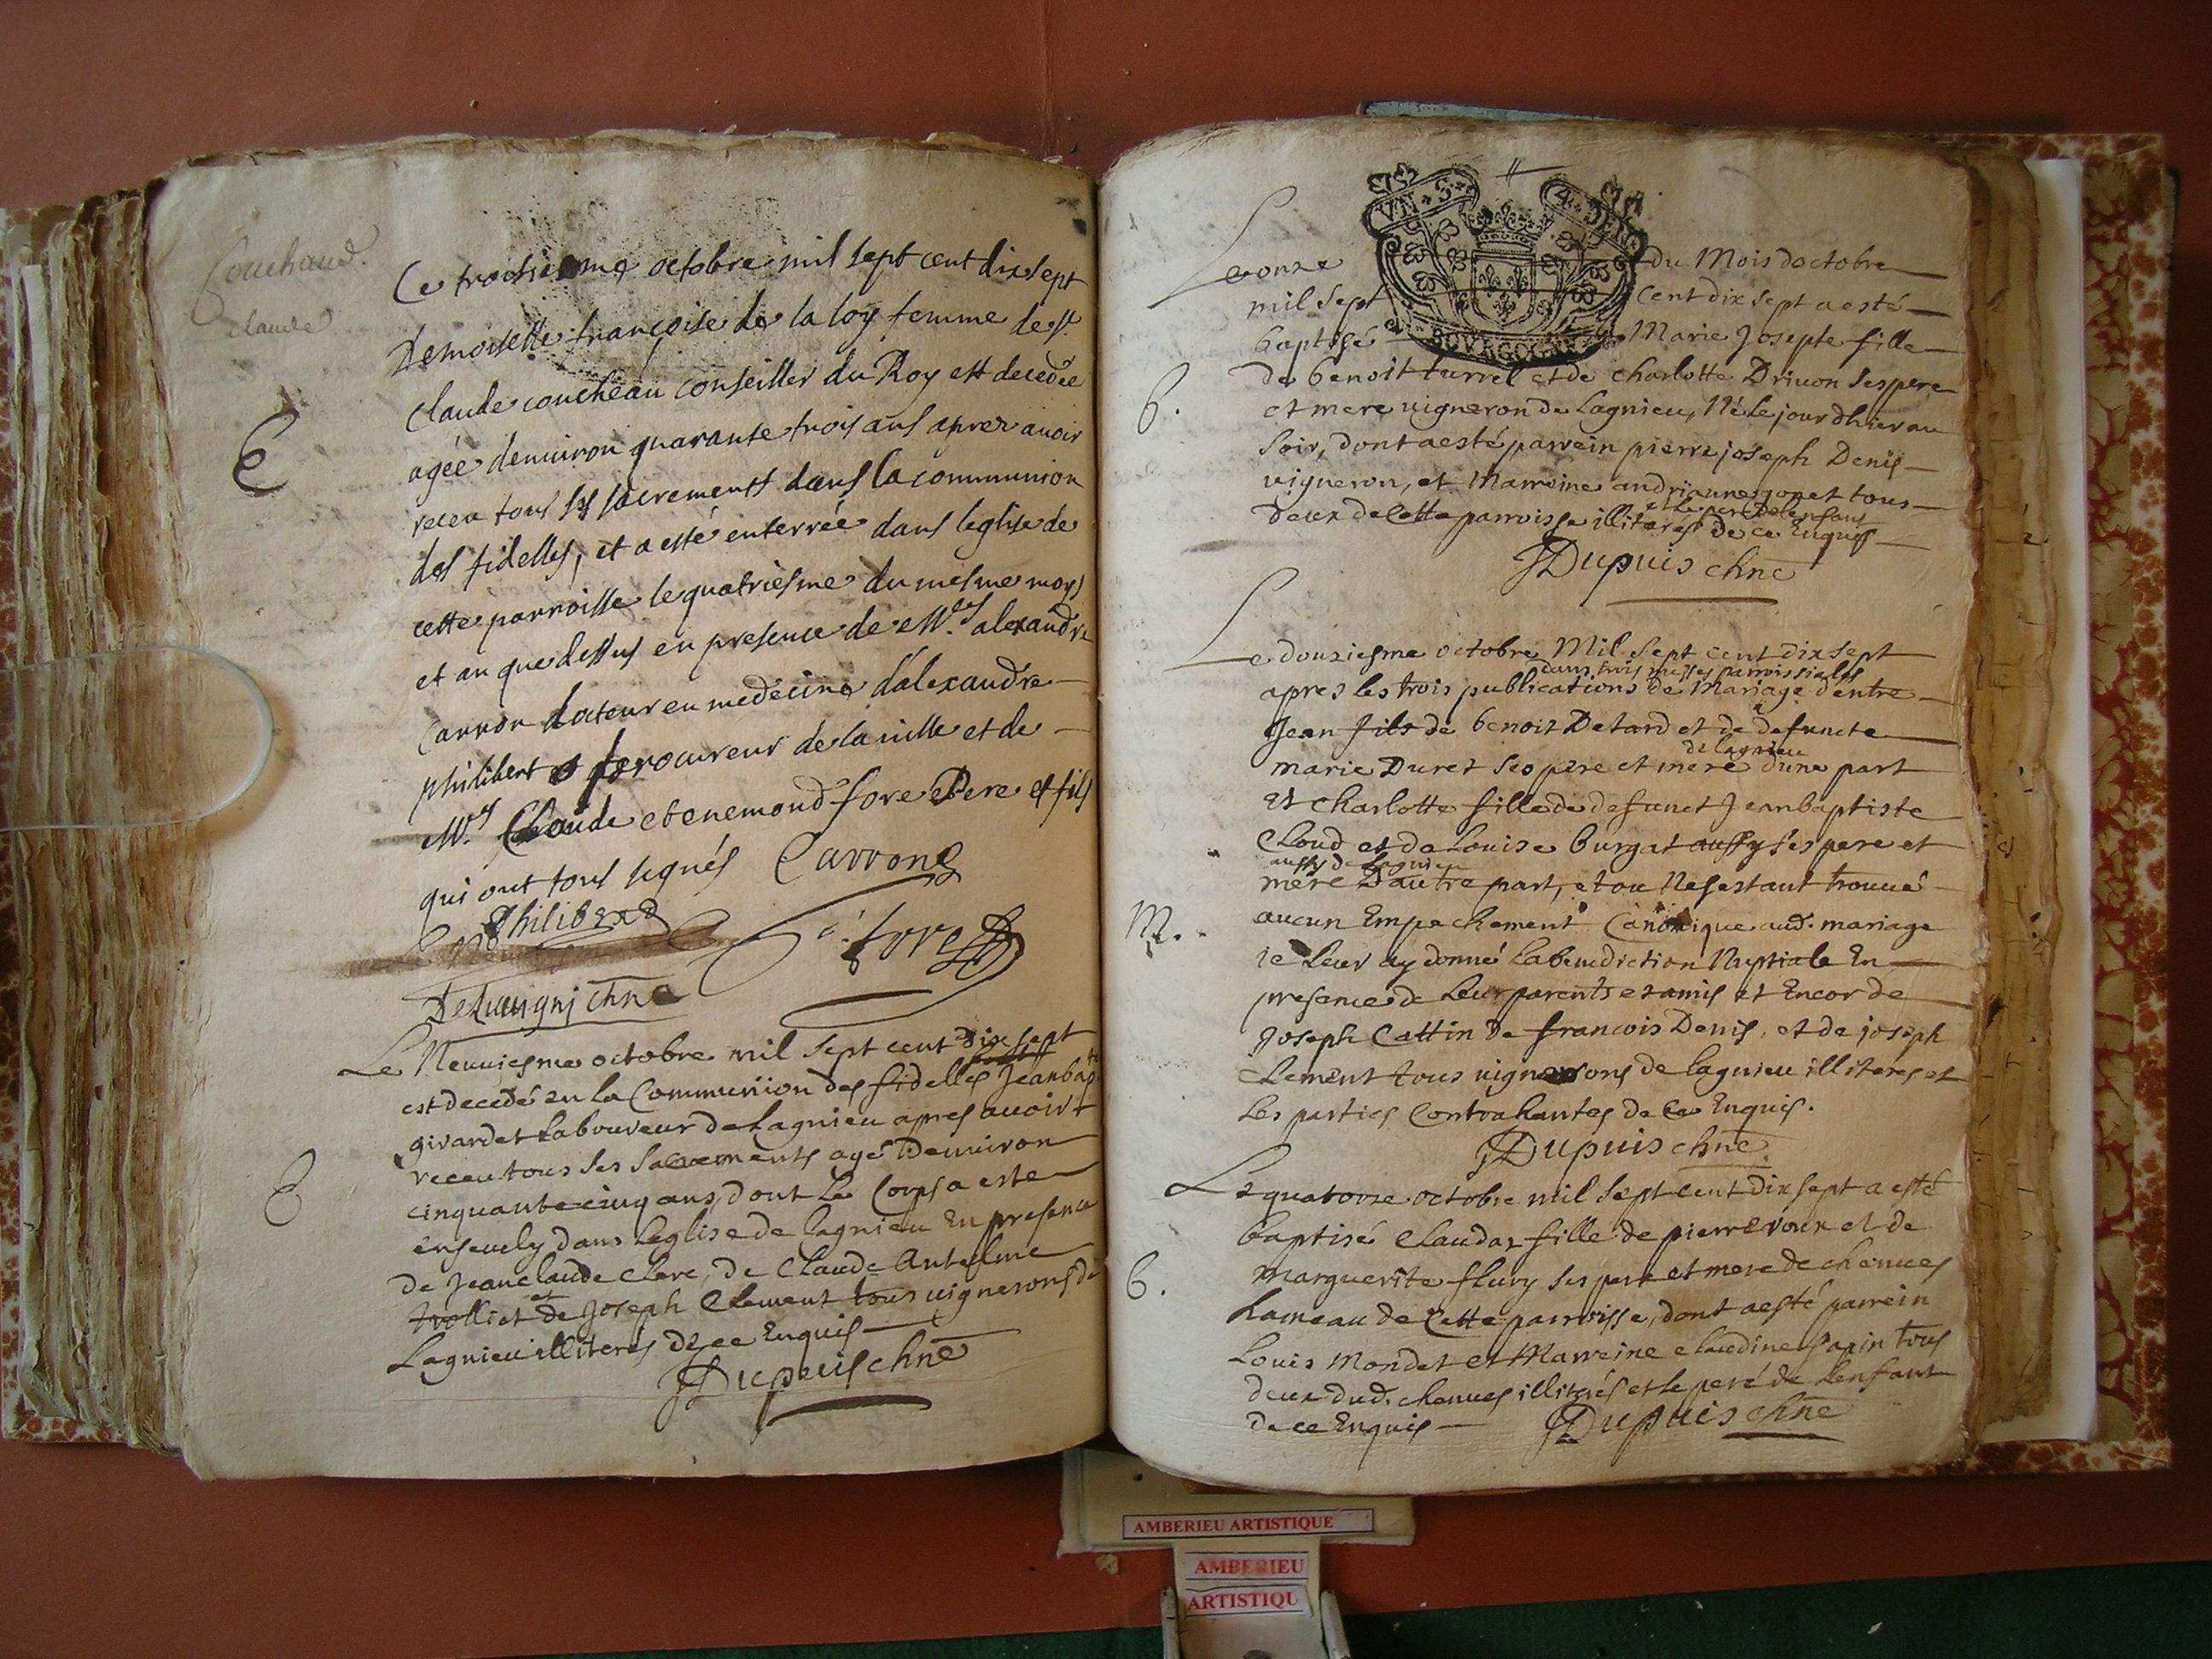 Couchaud
claude
Ce troisiesme octobre mil sept cent dix sept
Demoiselle françoise de la loy femme de Sr
Claude coucheau conseiller du Roy est decedée
E
agée denuiron quarante trois ans aprez auoir
receu tous ses sacrements dans la communion
des fidelles, et a esté enterrée dans leglise de
cette parroisse le quatriesme du mesme moys
et an que dessus en presence de Mrs alexandre
Carron docteur en medecine d'alexandre
philibert procureur de la ville et de
Mrs Claude et enemond fore Pere et fils
qui ont tous signés Carron
Philibert
fore
Delauigni chne
Le Neuuiesme octobre mil sept cent dix sept
est decedé en la Communion des fidelles Jean bapte
girardet Laboureur de Lagnieu apres auoir
receu tous ses sacrements agé Denuiron
E
cinquante cinq ans, dont Le Corps a este
enseuely dans Leglise de lagnieu En presence
de Jean claude clerc, de Claude Antelme
trolliet et de Joseph Clement tous uignerons de
Lagnieu illiterés de ce Enquis
JDupuis chne
VN S 4 DEN
BOVRGOGNE
Le onze du Mois doctobre
mil sept cent dix sept a esté
baptisé Marie Josepte fille
de benoit turrel et de Charlotte Driuon ses pere
B.
et mere uigneron de Lagnieu, Né Le jour dhier au
soir, dont a esté parrein pierre joseph Denis
uigneron, et Marreine andrianne gonet tous
et Le pere De lenfant
deux de Cette parroisse illiterés de ce Enquis
JDupuis chne
Le douziesme octobre Mil Sept cent Dix sept
dans trois messes parroissiales
apres les trois publications de Mariage d'entre
Jean fils de benoit Detard et de defuncte
de lagnieu
marie Duret ses pere et mere d'une part
et Charlotte fille de defunct Jean baptiste
Cloud et de Louise burgat aussy ses pere et
aussy de Lagnieu
mere D'autre part, et ou Ne sestant trouué
M.
aucun Empechement Canonique aud. mariage
ie Leur ay donné La benediction Nuptiale En
presence de Leur parents et amis et Encor de
Joseph Cattin de francois Denis, et de joseph
Clement tous uignerons de lagnieu illiterés et
Les parties Contrahantes de Ce Enquis.
JDupuis chne
Le quatorze octobre mil sept cent dix sept a esté
baptisé Claudaz fille de pierre roux et de
Marguerite flury ses pere et mere de chanues
B.
hameau de Cette parroisse, dont a esté parrein
Louis Mondet et Marreine claudine sapin tous
deux dud. chanues illiterés et le pere de Lenfant
de ce Enquis JDupuis chne
AMBERIEU ARTISTIQUE
AMBERIEU
ARTISTIQU